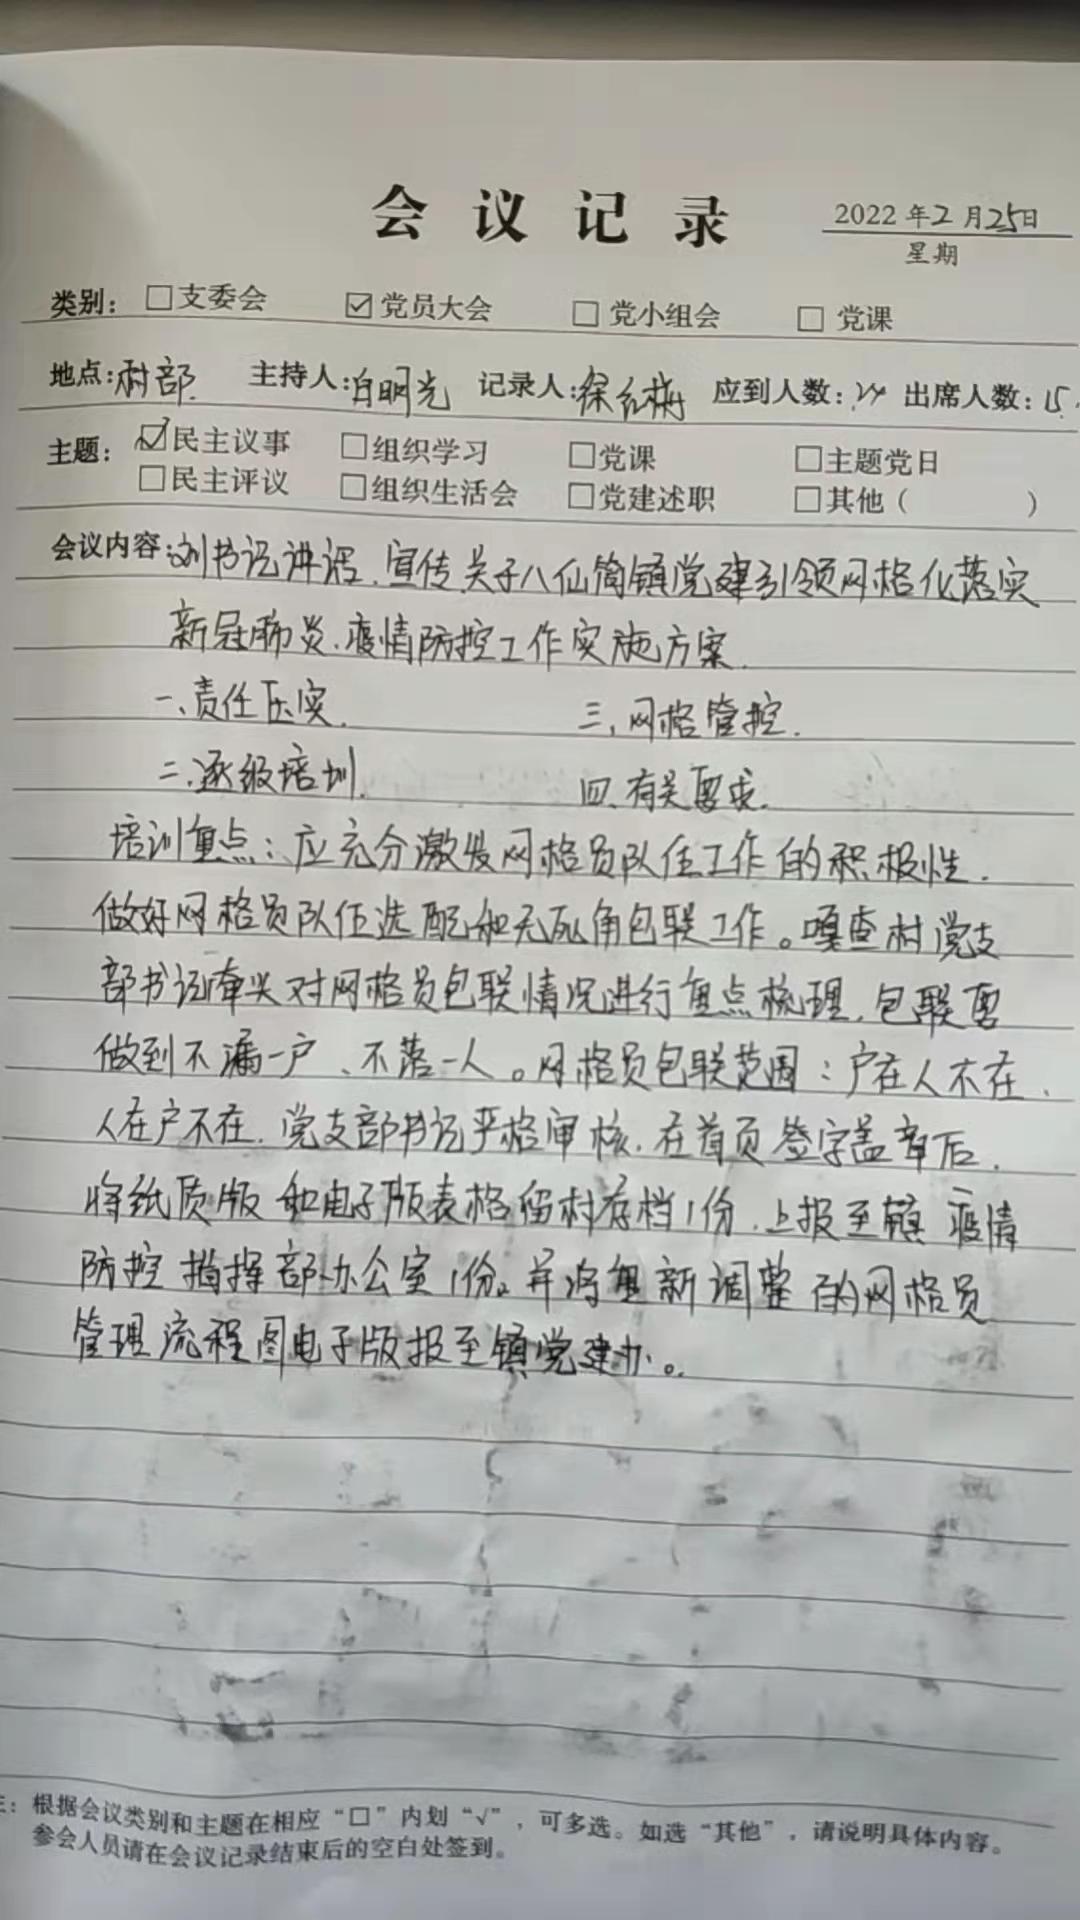 会议记录
2022年2月25日
星期
类别：□支委会 ☑党员大会 □党小组会 □党课
地点：村部. 主持人：白明光 记录人：徐红梅 应到人数：24 出席人数：15.
主题：☑民主议事 □组织学习 □党课 □主题党日
□民主评议 □组织生活会 □党建述职 □其他（ ）
会议内容：刘书记讲话.宣传关于八仙筒镇党建引领网格化落实
新冠肺炎.疫情防控工作实施方案.
一、责任压实. 三、网格管控.
二、逐级培训. 四、有关要求.
培训重点：应充分激发网格员队伍工作的积极性.
做好网格员队伍选配和无死角包联工作。嘎查村党支
部书记牵头对网格员包联情况进行重点梳理.包联要
做到不漏一户、不落一人。网格员包联范围：户在人不在、
人在户不在.党支部书记严格审核.在首页签字盖章后.
将纸质版和电子版表格留村存档1份.上报至镇疫情
防控指挥部办公室1份。并将重新调整的网格员
管理流程图电子版报至镇党建办。
：根据会议类别和主题在相应“□”内划“√”，可多选。如选“其他”，请说明具体内容。
参会人员请在会议记录结束后的空白处签到。